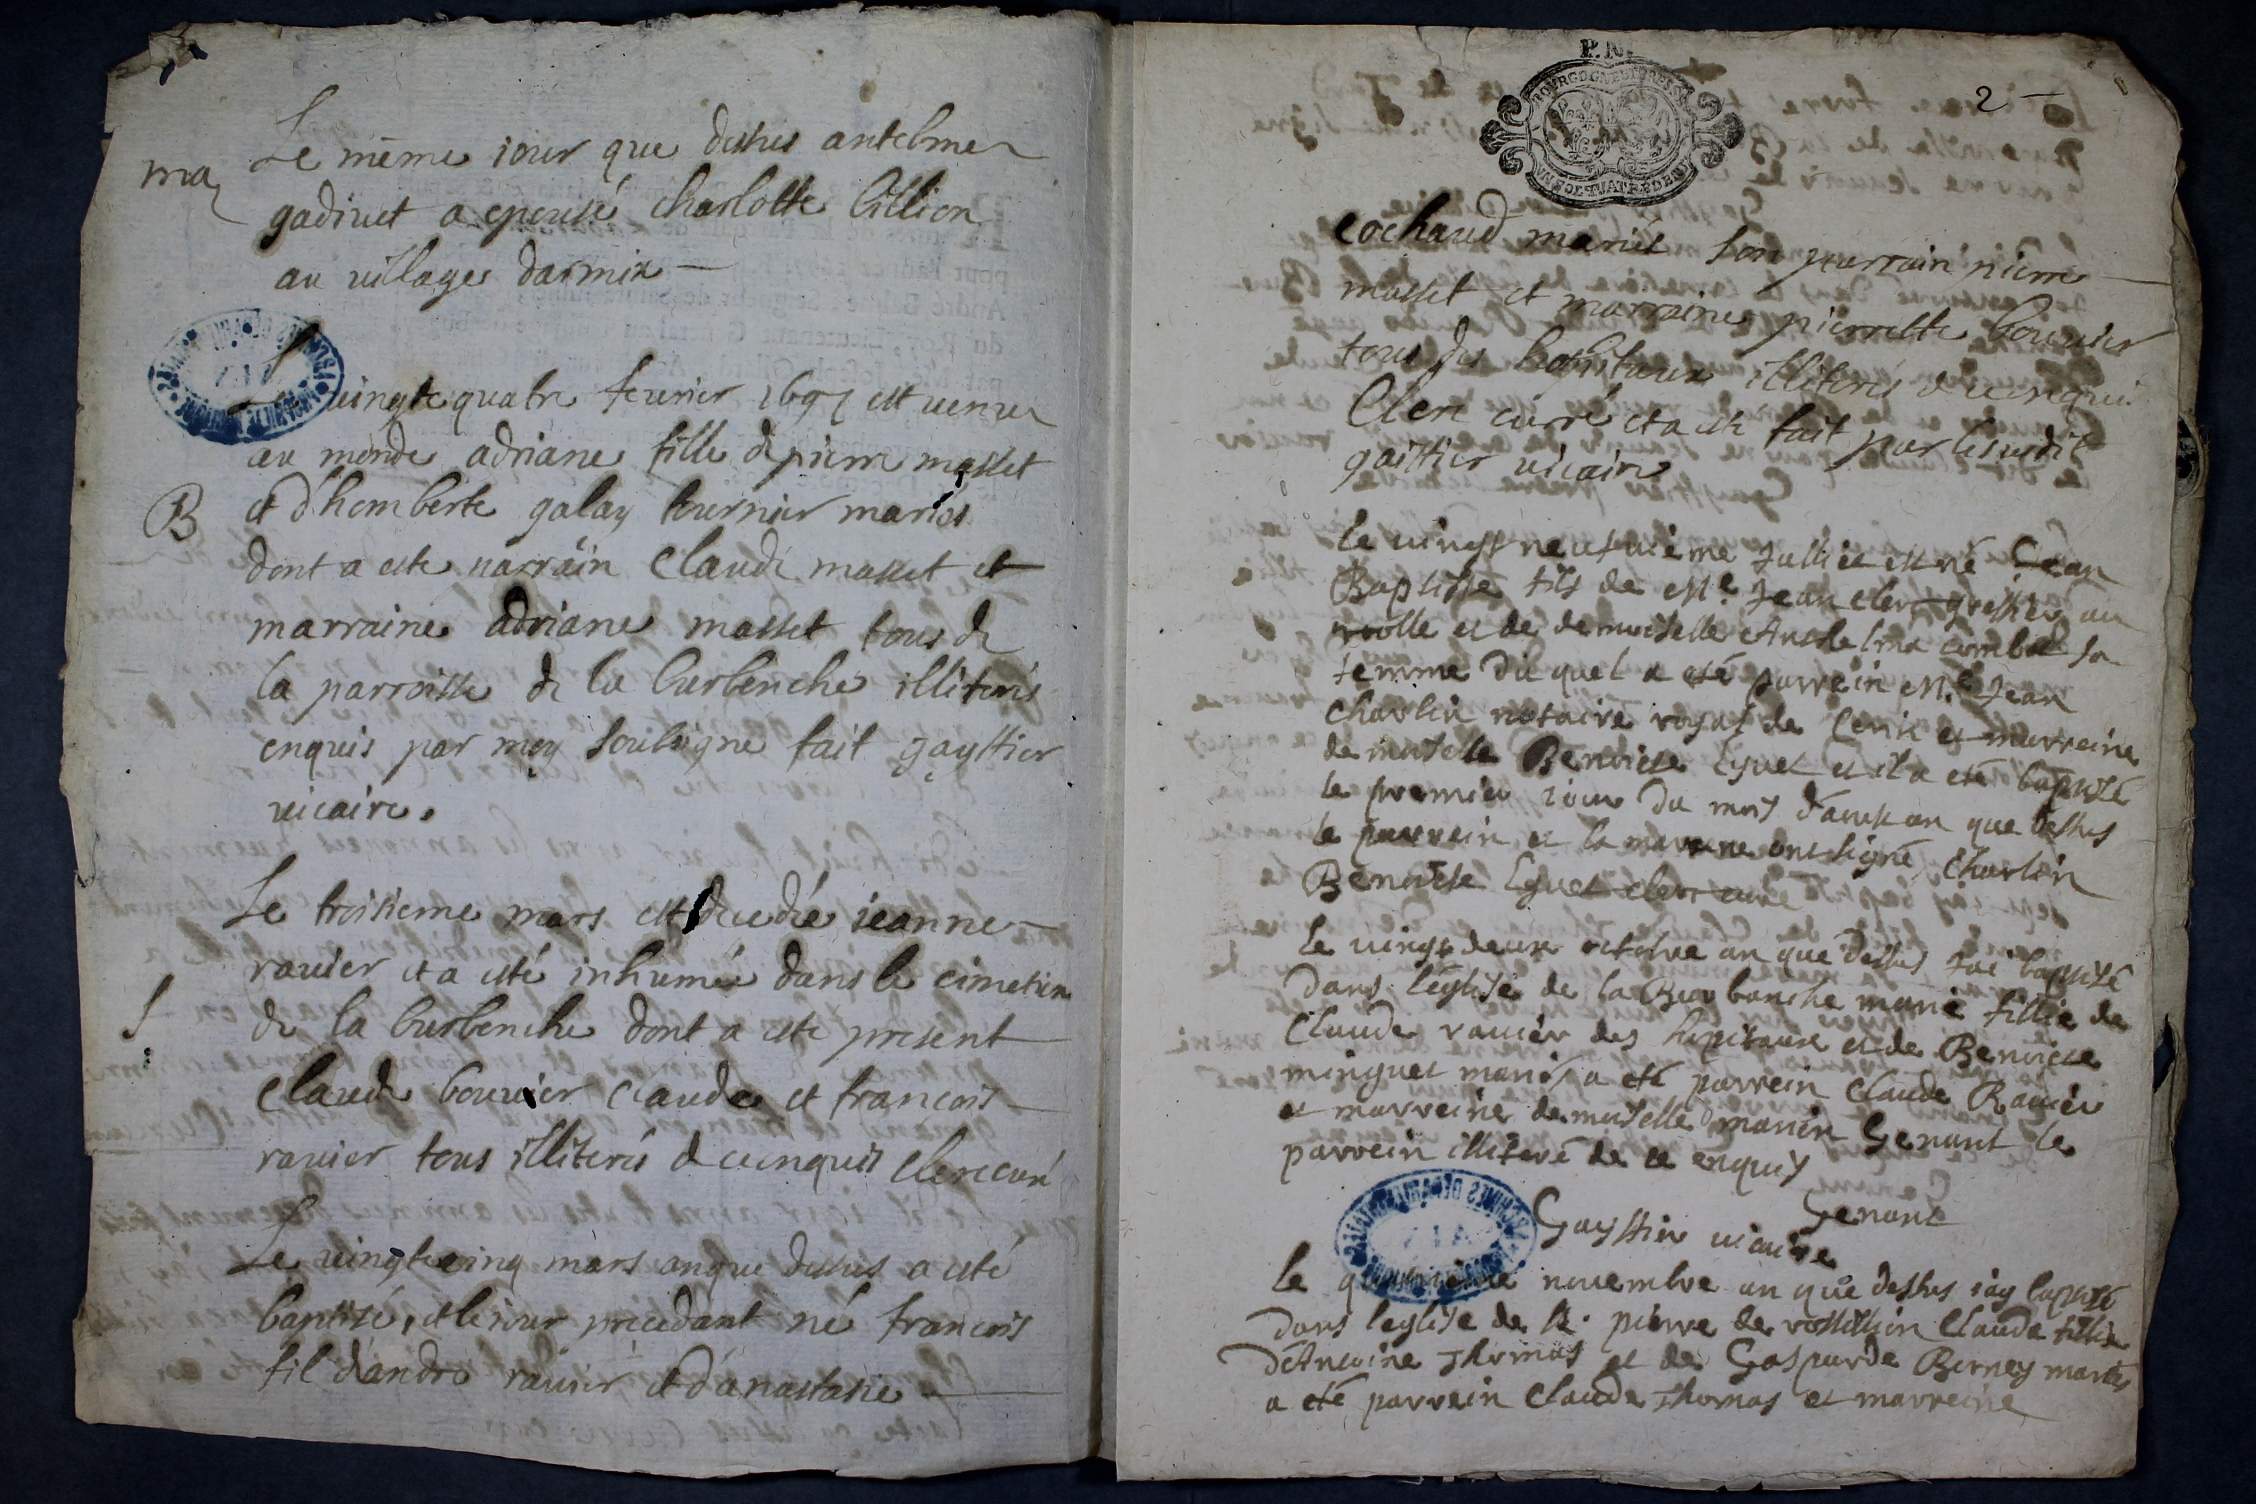 Le même iour que dessus antelme
ma
gadiuet a epousé charlotte billion
au village darmix
Le vingte quatre feurier 1697 est venue
au monde adriane fille de pierre masset
B
et d'homberte galay tournier mariés
dont a este parrain Claude masset et
marraine adriane masset tous de
la parroisse de la burbenche illiterés
enquis par moy soubsigne fait gaysttier
vicaire.
Le troisieme mars est decedée ieanne
rauier et a esté inhumée dans le cimetiere
S
de la burbenche dont a este present
claude bouuier claude et francois
rauier tous illiterés de ce enquis Clerc curé
Le vingtecinq mars anque dessus a esté
baptisé, et le iour precedant né francois
fil d'andre rauier et d'anastasie
2
cochaud mariés son parrain pierre
masset et marraine pierrette bouuier
tous des hopitaux illiterés de ce enquis
Clerc curré et a este fait par le susdit
gaisttier vicaire
le vingt neufvième Julliet est né Jean
Baptiste fils de Me. Jean clerc greffier au
roolle et de demoiselle Anthelma combet sa
femme du quel a eté parrein Me. Jean
Charlin notaire royal de Cerin et marreine
demoiselle Benoiete Eynet et il a eté baptizé
le premier iour du mois d'aust an que dessus
le parrein et la marreine ont signé, Charlin
Benoiete Eynet clerc curé
le vingt deux octobre an que dessus Jai baptizé
dans l'eglise de la Burbanche marie fillie de
Claude rauier des hopitaux et de Benoiete
minguet mariés a eté parrein Claude Rauier
et marreine demoiselle marien Genant le
parrein illiteré de ce enquis
Genant
Gaysttier vicaire
le novembre an que dessus iay baptizé
dans l'eglise de St. pierre de rossillion Claude fillie
d'Antoine Thomas et de Gasparde Berney mariés
a eté parrein Claude Thomas et marreine